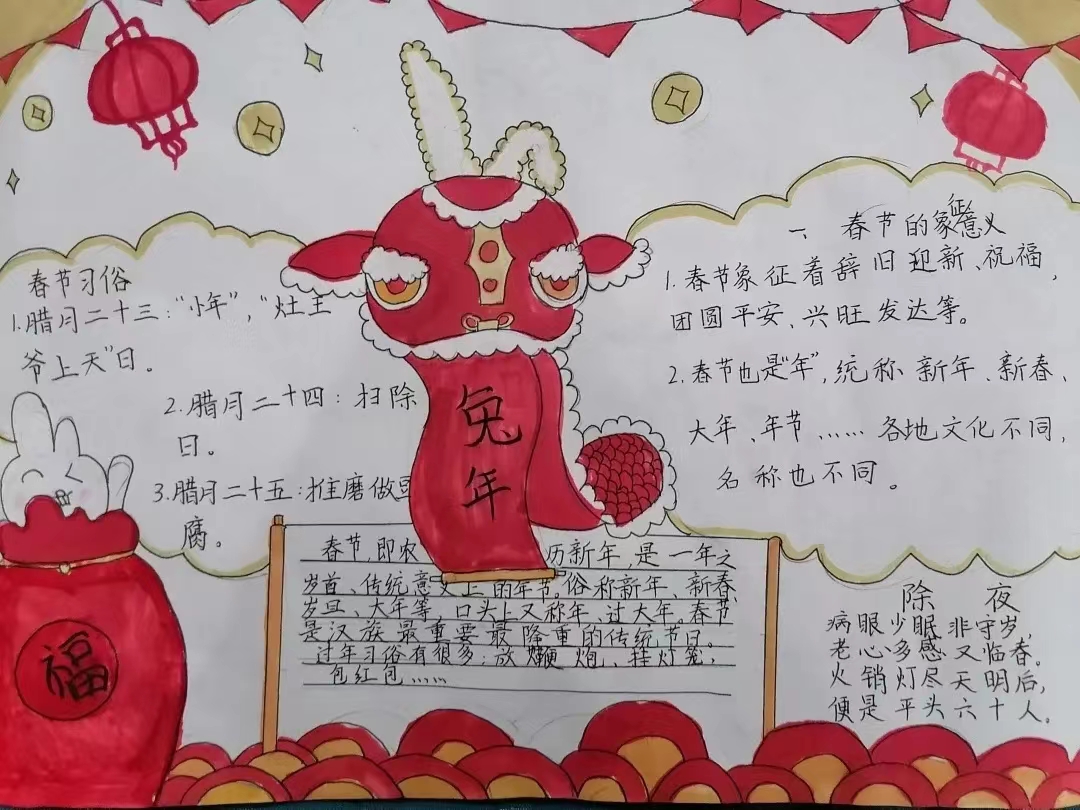 春节习俗
1.腊月二十三:“小年”,“灶王
爷上天”日。
2.腊月二十四:扫除
日。
3.腊月二十五:推磨做豆
腐。
兔
年
一、春节的象征意义
1.春节象征着辞旧迎新、祝福,
团圆平安、兴旺发达等。
2.春节也是“年”,统称新年、新春、
大年、年节……各地文化不同,
名称也不同。
春节,即农历新年,是一年之
岁首、传统意义上的年节。俗称新年、新春
岁旦、大年等,口头上又称年、过大年。春节
是汉族最重要最隆重的传统节日。
过年习俗有很多:放鞭炮、挂灯笼,
包红包……
福
除夜
病眼少眠非守岁,
老心多感又临春。
火销灯尽天明后,
便是平头六十人。